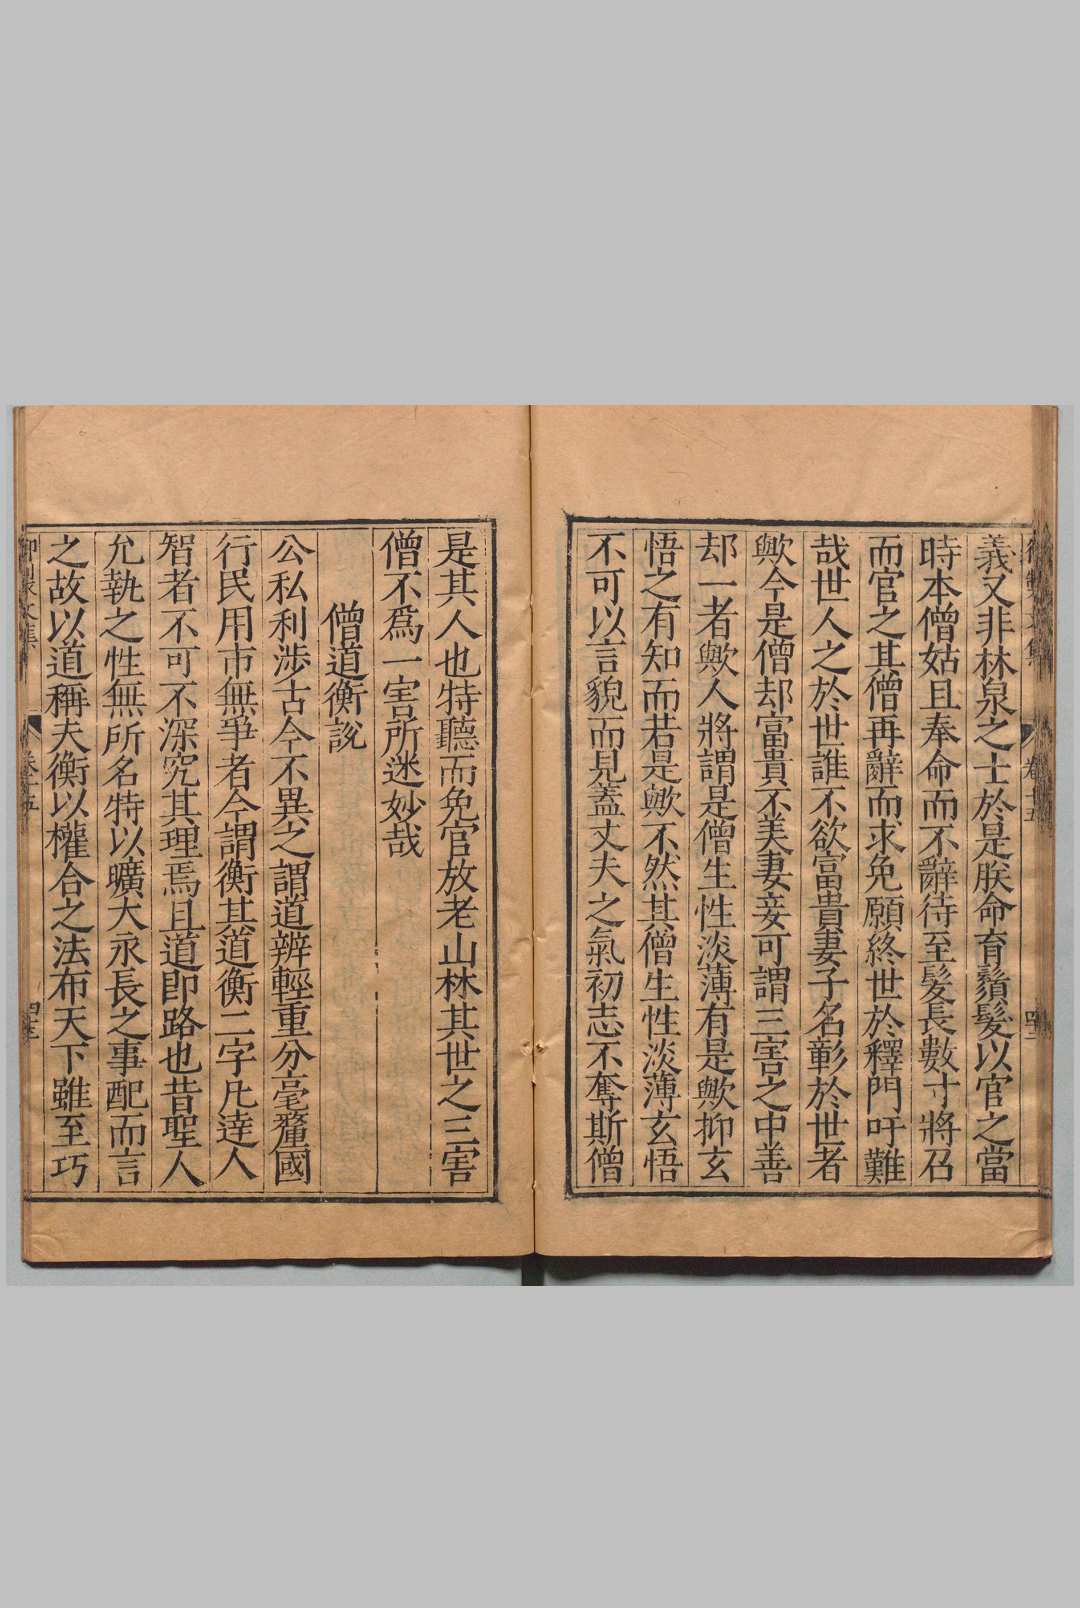 義又非林泉之士於是朕命育鬚髮以官之當
時本僧姑且奉命而不辭待至髮長數寸將召
而官之其僧再辭而求免願終世於釋門吁難
哉世人之於世誰不欲富貴妻子名彰於世者
歟今是僧却富貴不美妻妾可謂三害之中善
却一者歟人將謂是僧生性淡薄有是歟抑玄
悟之有知而若是歟不然其僧生性淡薄玄悟
不可以言貌而見蓋丈夫之氣初志不奪斯僧
是其人也特聽而免官放老山林其世之三害
僧不爲一害所迷妙哉
僧道衡說
公私利涉古今不異之謂道辨輕重分毫釐國
行民用市無爭者今謂衡其道衡二字凡達人
智者不可不深究其理焉且道即路也昔聖人
允執之性無所名特以曠大永長之事配而言
之故以道稱夫衡以權合之法布天下雖至巧
卷十五